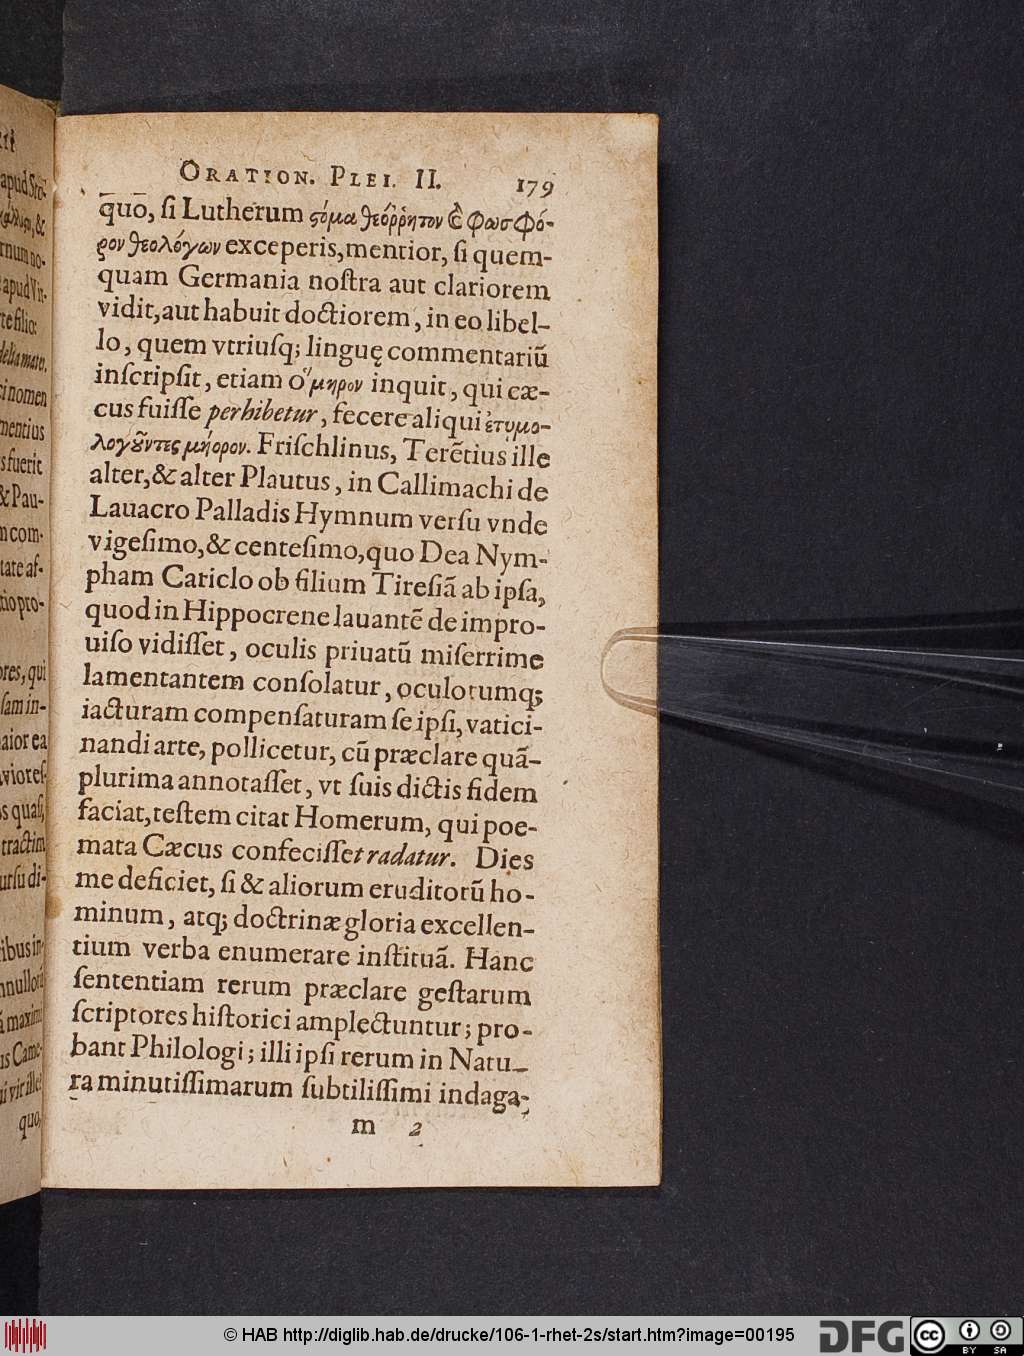 ORATION. PLEI. II. 179
quo, ſi Lutherum ςόμα θεόῤῥητον & Φωσφό-
ρον θεολόγων exceperis, mentior, ſi quem-
quam Germania noſtra aut clariorem
vidit, aut habuit doctiorem, in eo libel-
lo, quem vtriuſq; linguę commentariũ
inſcripſit, etiam ὅμηρον inquit, qui cæ-
cus fuiſſe perhibetur, fecere aliqui ἐτυμο-
λογοῦντες μήορον. Friſchlinus, Terẽtius ille
alter, & alter Plautus, in Callimachi de
Lauacro Palladis Hymnum verſu vnde
vigeſimo, & centeſimo, quo Dea Nym-
pham Cariclo ob filium Tireſiã ab ipſa,
quod in Hippocrene lauantẽ de impro-
uiſo vidiſſet, oculis priuatũ miſerrime
lamentantem conſolatur, oculorumq;
iacturam compenſaturam ſe ipſi, vatici-
nandi arte, pollicetur, cũ præclare quã-
plurima annotaſſet, vt ſuis dictis fidem
faciat, teſtem citat Homerum, qui poe-
mata Cæcus confeciſſe tradatur. Dies
me deficiet, ſi & aliorum eruditorũ ho-
minum, atq; doctrinæ gloria excellen-
tium verba enumerare inſtituã. Hanc
ſententiam rerum præclare geſtarum
ſcriptores hiſtorici amplectuntur; pro-
bant Philologi; illi ipſi rerum in Natu-
ra minutiſſimarum ſubtiliſſimi indaga-
m 2
apud
&
apud Vir-
te filio:
ci nomen
mentius
s fuerit
& Pau-
com-
tate af-
tio pro-
ores, qui
ſam in-
aior ea
s quaſi,
tractim
urſu di-
ribus in-
quo,
© HAB http://diglib.hab.de/drucke/106-1-rhet-2s/start.htm?image=00195
DFG
cc
BY SA